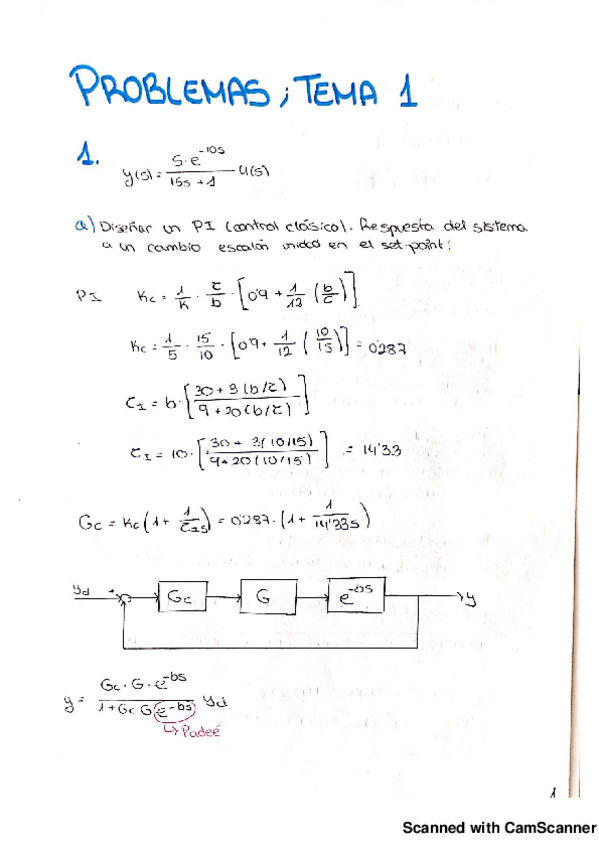 PROBLEMAS; TEMA 1
1. y(s) = 5·e^-10s / 15s + 1 u(s)
a) Diseñar un PI (control clásico). Respuesta del sistema
a un cambio escalón unidad en el set-point:
PI Kc = 1/K · τ/b · [0'9 + 1/12 (b/τ)]
Kc = 1/5 · 15/10 · [0'9 + 1/12 (10/15)] = 0'287
τI = b · [30 + 3(b/τ) / 9 + 20(b/τ)]
τI = 10 · [30 + 3(10/15) / 9 + 20(10/15)] = 14'33
Gc = Kc (1 + 1/τIs) = 0'287 · (1 + 1/14'33s)
yd + - Gc G e^-bs y
y = Gc · G · e^-bs / 1 + Gc G e^-bs yd
↳ Padeé
1
Scanned with CamScanner